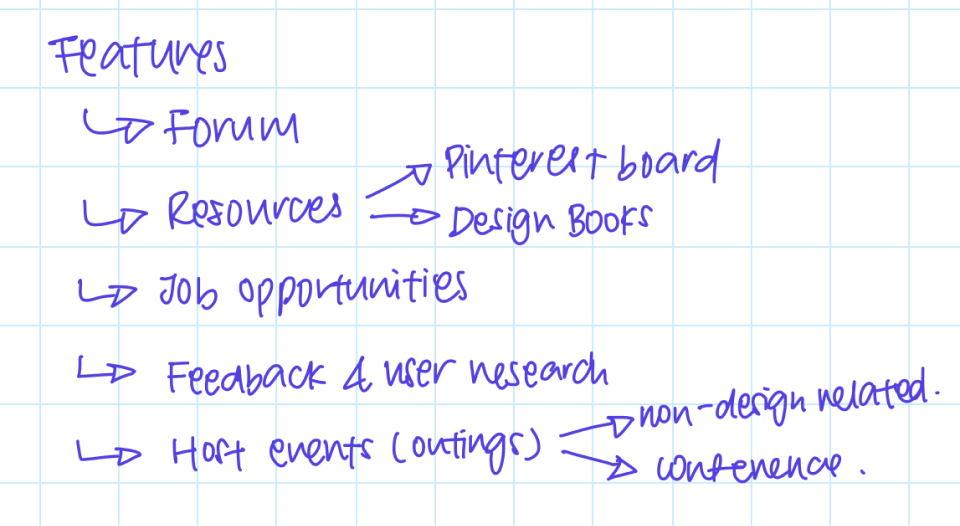 Features
Forum
Resources
Pinterest board
Design Books
Job opportunities
Feedback & user research
Host events (outings)
non-design related.
conference.